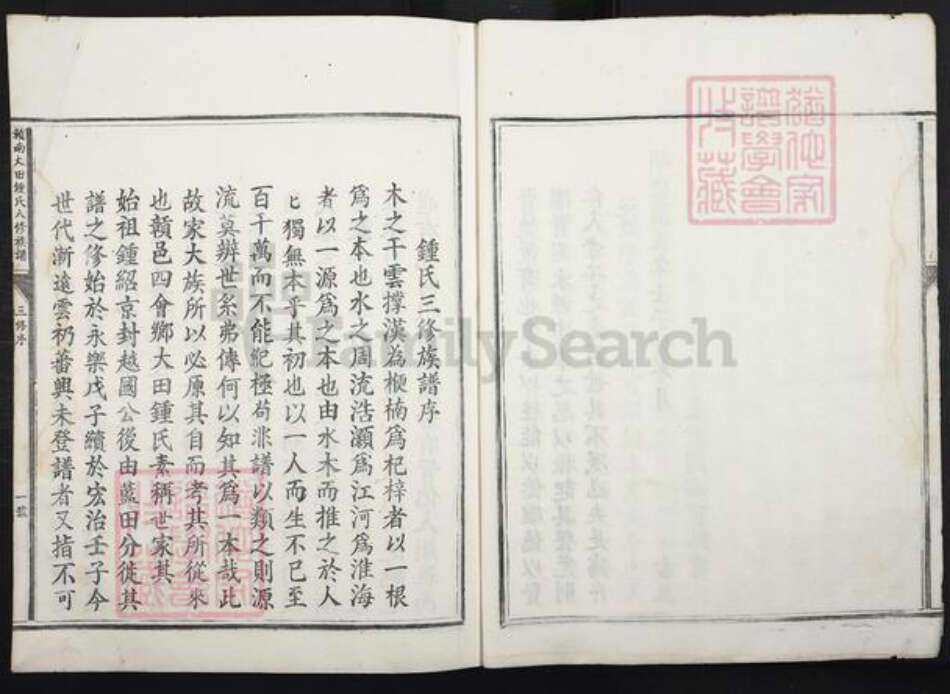 鍾氏三修族譜序
木之干雲撐漢為楩楠爲杞梓者以一根
爲之本也水之周流浩灝爲江河爲淮海
者以一源爲之本也由水木而推之於人
獨無本乎其初也以一人而生不已至
百千萬而不能紀極苟非譜以類之則源
流莫辨世系弗傳何以如其爲一本哉此
故家大族所以必原其自而考其所從來
也贛邑四會鄉大田鍾氏素稱世家其
始祖鍾紹京封越國公後由藍田分徙其
譜之修始於永樂戊子續於宏治壬子今
世代漸遠雲礽蕃興未登譜者又指不可
南大田鍾氏八修族譜
三修序
一
FamilySearch